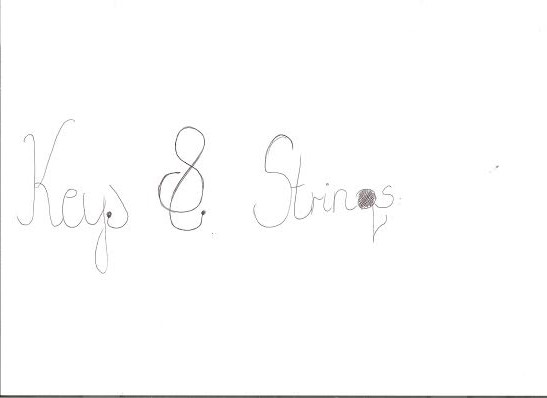 Keys & Strings